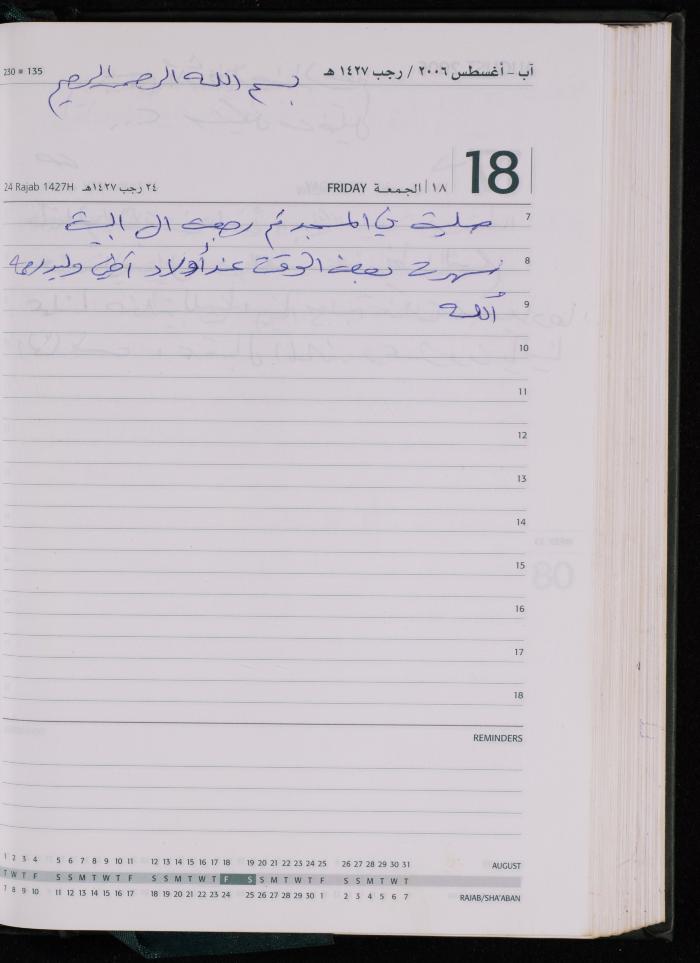 230 ■ 135
آب - أغسطس ٢٠٠٦ / رجب ١٤٢٧ هـ
بسم الله الرحمن الرحيم
24 Rajab 1427H ٢٤ رجب ١٤٢٧هـ FRIDAY ١٨ الجمعة 18
7 صليت في المسجد ثم رجعت الى البيت
8 سهرت بعض الوقت عند أولاد أخي وليد رحمه
9 الله
10
11
12
13
14
15
16
17
18
REMINDERS
1 2 3 4 5 6 7 8 9 10 11 12 13 14 15 16 17 18 19 20 21 22 23 24 25 26 27 28 29 30 31 AUGUST
T W T F S S M T W T F S S M T W T F S S M T W T F S S M T W T
7 8 9 10 11 12 13 14 15 16 17 18 19 20 21 22 23 24 25 26 27 28 29 30 1 2 3 4 5 6 7 RAJAB/SHA'ABAN